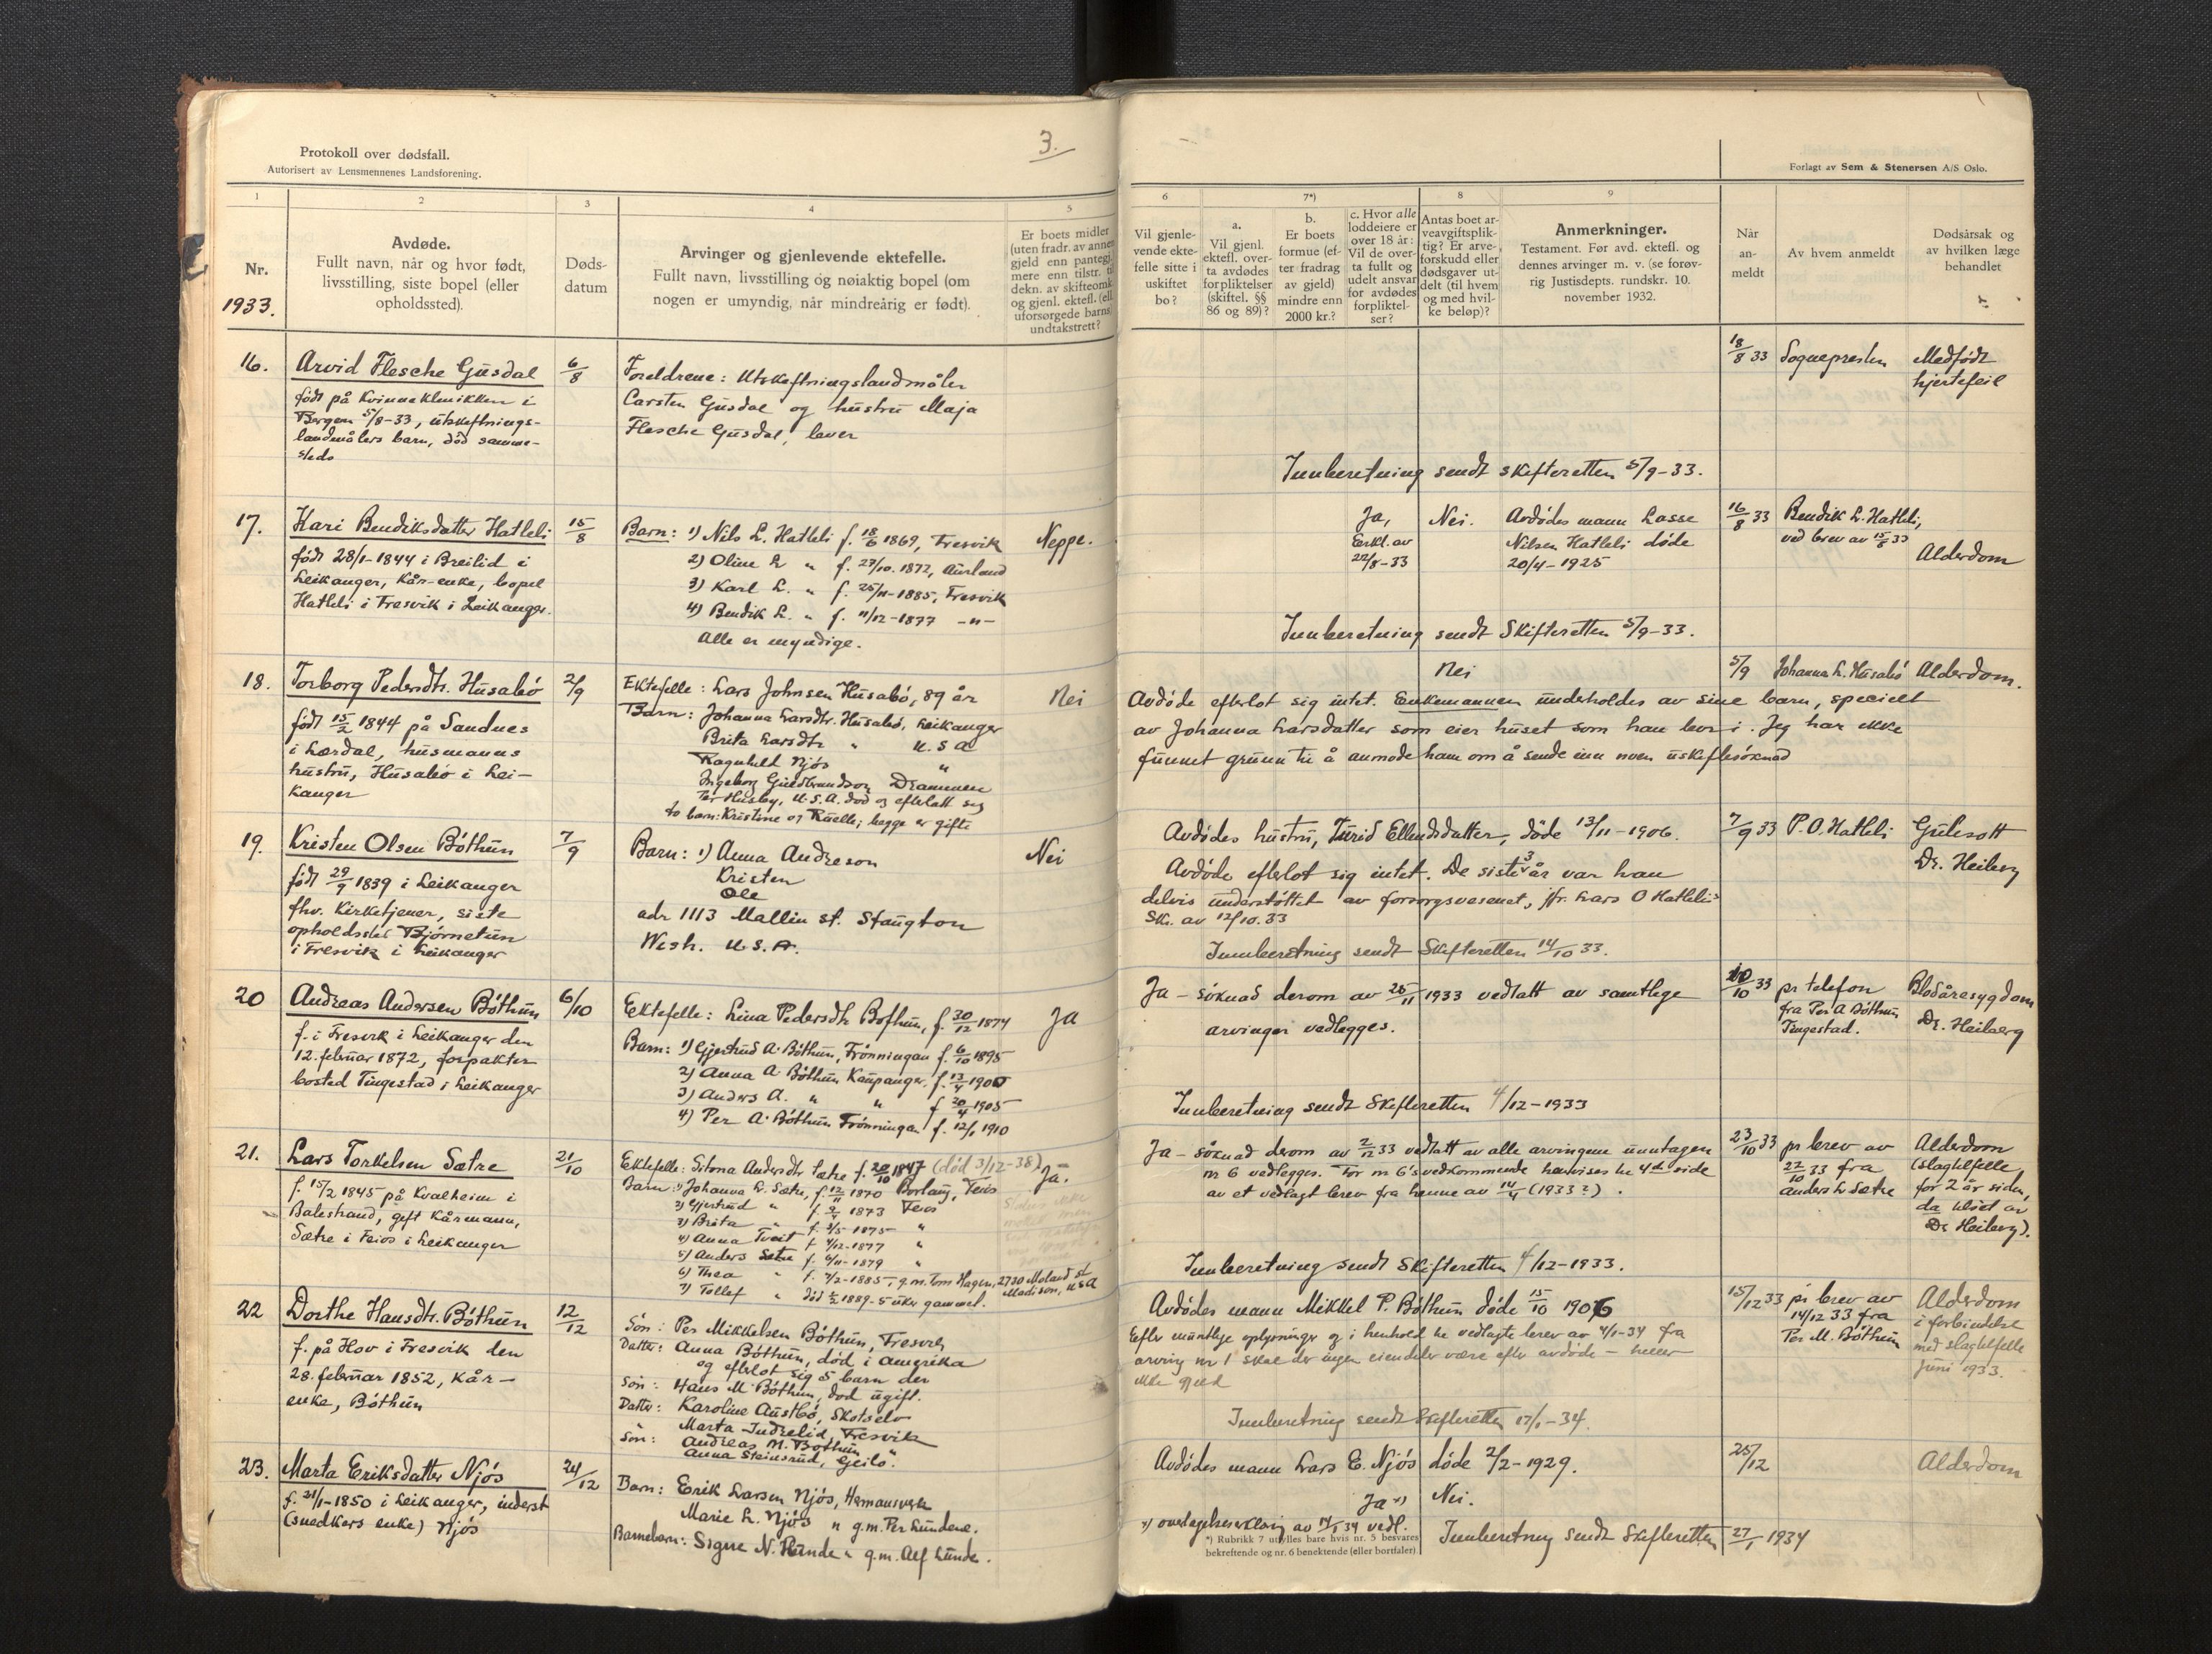 3.
Protokoll over dødsfall.
Autorisert av Lensmennenes Landsforening.
Forlagt av Sem & Stenersen A/S Oslo.
1
2
3
4
5
6
7*)
8
9
Nr.
1933.
Avdøde.
Fullt navn, når og hvor født,
livsstilling, siste bopel (eller
opholdssted).
Døds-
datum
Arvinger og gjenlevende ektefelle.
Fullt navn, livsstilling og nøiaktig bopel (om
nogen er umyndig, når mindreårig er født).
Er boets midler
(uten fradr. av annen
gjeld enn pantegj.
mere enn tilstr. til
dekn. av skifteomk.
og gjenl. ektef. (ell.
uforsørgede barns)
undtakstrett?
Vil gjenle-
vende ekte-
felle sitte i
uskiftet
bo?
a.
Vil gjenl.
ektef. over-
ta avdødes
forpliktelser
(skiftel. §§
86 og 89)?
b.
Er boets
formue (ef-
ter fradrag
av gjeld)
mindre enn
2000 kr.?
c. Hvor alle
loddeiere er
over 18 år:
Vil de over-
ta fullt og
udelt ansvar
for avdødes
forpliktel-
ser?
Antas boet ar-
veavgiftsplik-
tig? Er arve-
forskudd eller
dødsgaver ut-
delt (til hvem
og med hvil-
ke beløp)?
Anmerkninger.
Testament. Før avd. ektefl. og
dennes arvinger m. v. (se forøv-
rig Justisdepts. rundskr. 10.
november 1932.
Når
an-
meldt
Av hvem anmeldt
Dødsårsak og
av hvilken læge
behandlet
16.
Arvid Flesche Gusdal
født på Kvinneklinikken i
Bergen 5/8-33, utskiftnings-
landmålers barn, død samme-
steds
6/8
Foreldrene: Utskiftningslandmåler
Carsten Gusdal og hustru Maja
Flesche Gusdal, lever
Innberetning sendt skifteretten 5/9-33.
18/8 33
Sognepresten
Medfødt
hjertefeil
17.
Kari Bendiksdatter Hatleli
født 28/1-1844 i Breilid i
Leikanger, kår-enke, bopel
Hatleli i Fresvik i Leikanger.
15/8
Barn: 1) Nils L. Hatleli f. 18/6 1869, Fresvik
2) Oline L. " f. 27/10. 1872, Aurland
3) Karl L. " f. 25/11-1885, Fresvik
4) Bendik L. " f. 11/12-1877 -"-
Alle er myndige.
Neppe.
Ja,
Erkl. av
22/8-33
Nei.
Avdødes mann Lasse
Nilsen Hatleli døde
20/4-1925
Innberetning sendt Skifteretten 5/9-33.
16/8 33
Bendik L. Hatleli,
ved brev av 15/8 33
Alderdom
18.
Torborg Pedersdtr. Husabø
født 15/2 1844 på Sandnes
i Lærdal, husmanns
hustru, Husabø i Lei-
kanger
2/9
Ektefelle: Lars Johnsen Husabø, 89 år
Barn: Johanna Larsdtr. Husabø, Leikanger
Brita Larsdtr " U.S.A
Ragnhild Njøs "
Ingeborg Gudbrandson Drammen
Per Husby, U.S.A. død og efterlatt sig
to barn: Kristine og Ruelle; begge er gifte
Nei
Nei
Avdøde efterlot sig intet. Enkemannen underholdes av sine barn, specielt
av Johanna Larsdatter som eier huset som han bor i. Jeg har ikke
funnet grunn til å anmode ham om å sende inn noen uskiftesøknad
5/9
Johanna L. Husabø
Alderdom.
19.
Kristen Olsen Bøthun
født 29/9 1839 i Leikanger
fhv. Kirketjener, siste
opholdssted Bjørnetun
i Fresvik i Leikanger
7/9
Barn: 1) Anna Andreson
Kristen
Ole
adr 1113 Mallin st. Staugton
Wish. U.S.A.
Nei
Avdødes hustru, Turid Ellendsdatter, døde 13/11-1906.
Avdøde efterlot sig intet. De siste 3 år var han
delvis understøttet av forsorgsvesenet, jfr. Lars O Hatlelis
Skr. av 12/10.33
Innberetning sendt Skifteretten 14/10 33.
7/9 33
P. O. Hatleli
Gulesott
Dr. Heiberg
20
Andreas Andersen Bøthun
f. i Fresvik i Leikanger den
12. februar 1872, forpakter
bosted Tingestad i Leikanger
6/10
Ektefelle: Lina Pedersdtr Bøthun, f. 30/12 1874
Barn: 1) Gjertrud A. Bøthun, Frønningen f. 6/10 1895
2) Anna A. Bøthun Kaupanger, f. 13/4 1900
3) Anders A. " " f. 20/4 1905
4) Per A. Bøthun Frønningen f. 12/1 1910
Ja
Ja - søknad derom av 26/11 1933 vedtatt av samtlige
arvinger vedlegges.
Innberetning sendt Skifteretten 4/12-1933
10/10 33
pr telefon
fra Per A Bøthun
Tingestad.
Blodåresygdom
Dr. Heiberg
21.
Lars Torkelsen Sætre
f. 15/2 1845 på Kvalheim i
Balestrand, gift kårmann,
Sætre i Feios i Leikanger
21/10
Ektefelle: Sitona Andersdtr Sætre f. 20/10 1847 (død 3/12-38)
Barn: 1) Johanna L. Sætre, f. 12/11 1870 Borlaug, Feios
2) Gjertrud " f. 9/4 1873 Feios
3) Brita " f. 3/5-1875 "
4) Anna Tveit f. 4/12-1877 "
5) Anders Sætre f. 6/11-1879 "
6) Thea " f. 7/2-1885, g.m. Tom Hagen, 2730 Moland st
Madison, USA
7) Tollef " død 5/2 1889-5 uker gammel.
Ja.
Ja - søknad derom av 2/12 33 vedtatt av alle arvingene unntagen
nr 6 vedlegges. For nr 6's vedkommende henvises til 4de side
av et vedlagt brev fra henne av 14/4 (1933?).
Innberetning sendt Skifteretten 4/12-1933.
23/10 33
pr brev av
22/10 33 fra
Anders L Sætre
Alderdom
(slagtilfelle,
for 2 år siden,
da tilset av
Dr. Heiberg).
22
Dorthe Hansdtr. Bøthun
f. på Hov i Fresvik den
28. februar 1852, kår-
enke, Bøthun
12/12
Søn: Per Mikkelsen Bøthun, Fresvik
Datter: Anna Bøthun, død i Amerika
og efterlot sig 5 barn der
Søn: Hans M. Bøthun, død ugift.
Datter: Karoline Austbø, Skotselv
" Marta Indrelid, Fresvik
Søn: Andreas M. Bøthun "
Anna Steinsrud, Geilo.
Avdødes mann Mikkel P. Bøthun døde 15/10 1906
Efter muntlige oplysninger og i henhold til vedlagte brev av 4/1-34 fra
arving nr 1 skal der ingen eiendeler være efter avdøde - heller
ikke gjeld
Innberetning sendt Skifteretten 17/1-34.
15/12 33
pr brev av
14/12 33 fra
Per M. Bøthun
Alderdom
i forbindelse
med slagtilfelle
juni 1933.
23.
Marta Eriksdatter Njøs
f. 21/1-1850 i Leikanger, inderst
(snedkers enke) Njøs
24/12
Barn: Erik Larsen Njøs, Hermansverk
Marie L. Njøs " g.m. Per Lundene.
Barnebarn: Signe N. Hunde " g.m. Alf Lunde.
Avdødes mann Lars E. Njøs døde 2/2-1929.
Ja x)
Nei.
x) overtagelseserklæring av 14/1 34 vedl.
Innberetning sendt Skifteretten 27/1 1934
25/12
Alderdom
*) Rubrikk 7 utfylles bare hvis nr. 5 besvares
bekreftende og nr. 6 benektende (eller bortfaller).